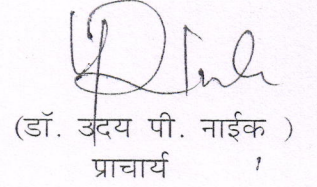 (डॉ. उदय पी. नाईक )
प्राचार्य